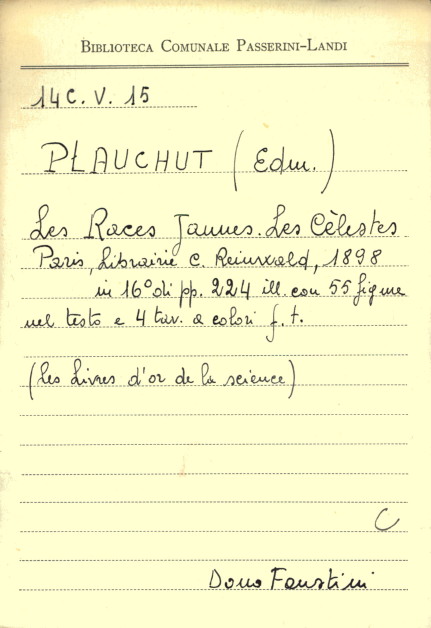 BIBLIOTECA COMUNALE PASSERINI-LANDI
14 C. V. 15
PLAUCHUT (Edm.)
Les Races Jaunes. Les Cèlestes
Paris, Librairie C. Reinwald, 1898
in 16° di pp. 224 ill. con 55 figure
nel testo e 4 tav. a colori f. t.
(Les Livres d'or de la science)
C
Dono Faustini